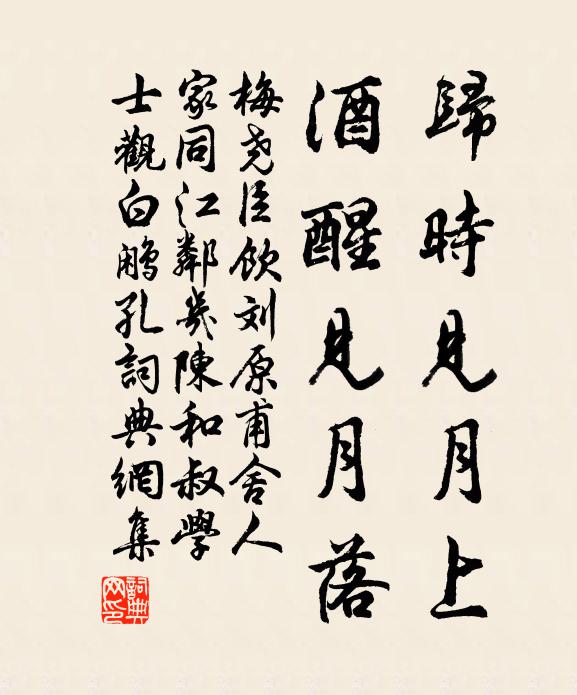 歸時見月上
酒醒見月落
梅堯臣飲刘原甫舍人
家同江鄰幾陳和叔學
士觀白鷴孔詞典網集
詞典
网印